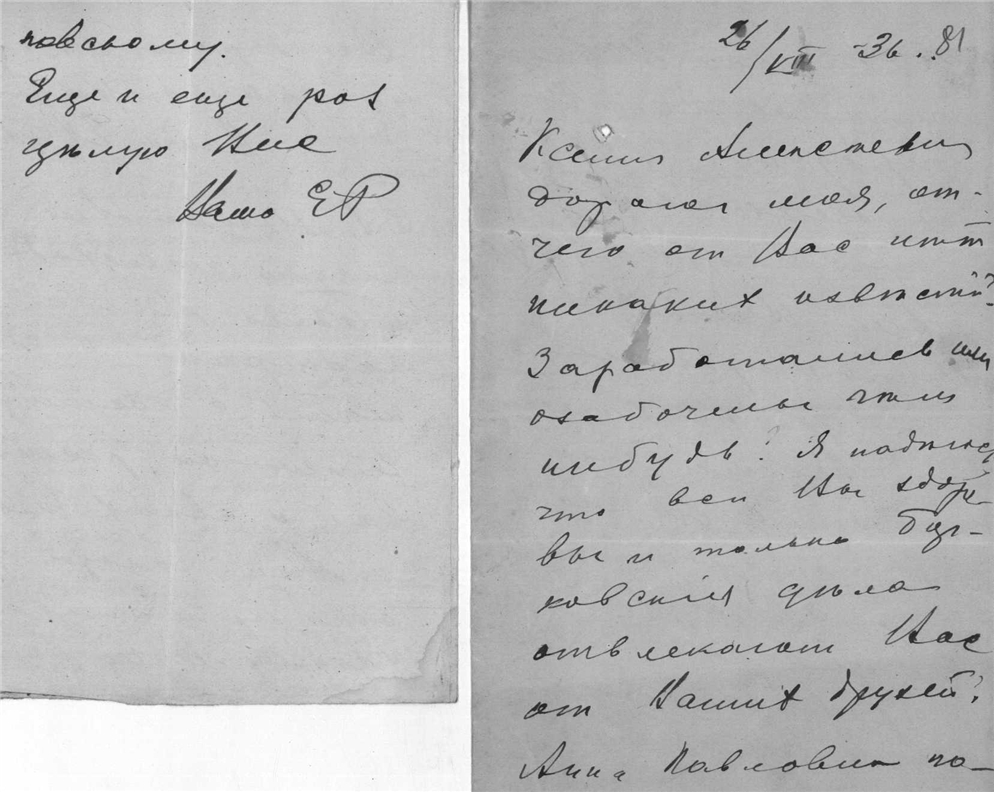 Еще и еще раз
цѣлую Вас
Ваша ЕР
26/VIII -36. 81
Ксения Алексѣевна
дорогая моя, от-
чего от Вас нѣт
никаких извѣстій?
Заработались или
озабочены чѣм
нибудь? Я надѣюсь
что всѣ Вы здоро-
вы и только
ковскія дѣла
отвлекают Вас
от Ваших друзей?
Анна Павловна по-